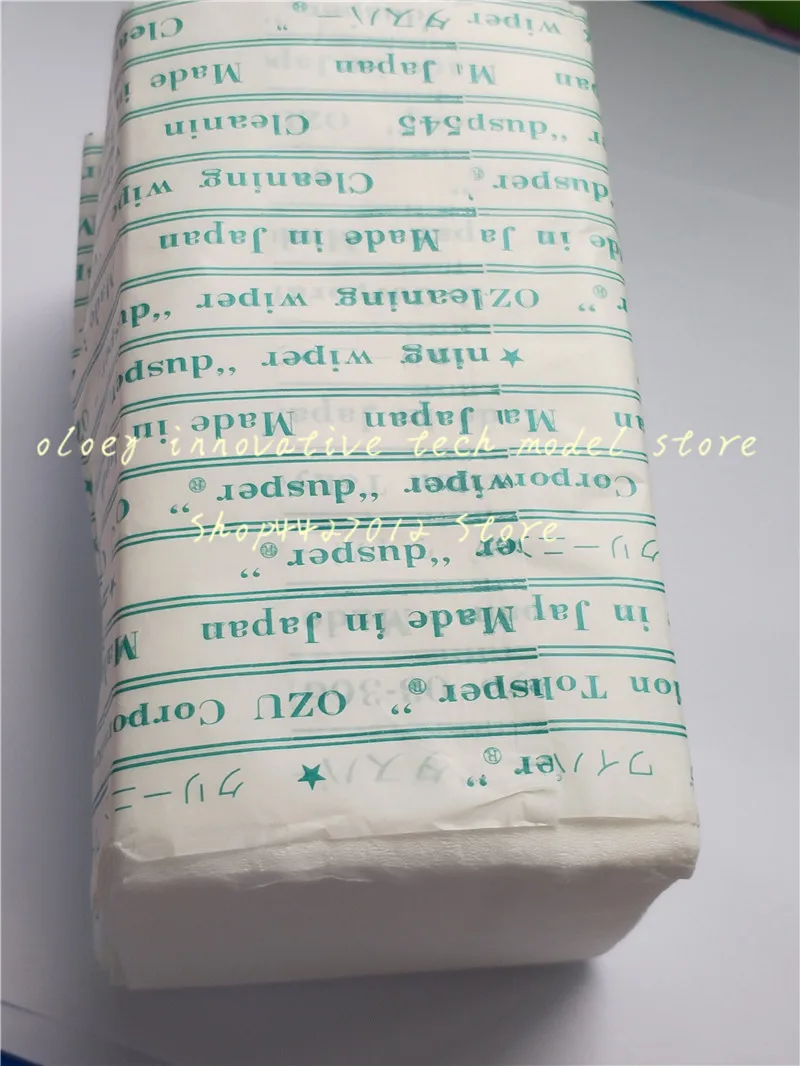 ワイパer®” ★ クリーニ
ion Tohsper®” OZU Corpo
in Jap Made in Japan Ma
クリーニ er “dusper®”
Corporwiper “dusper®” C
an Ma Japan Made in
★ ning wiper “duspe
r®” OZleaning wiper “du
de in Ja Made in Japan
dusper® ” Cleaning wipe
r “dusp545 Cleanin
pan Ma Japan Made in
wiper タスパー®” Clea
oloey innovative tech model store
Shop4427012 Store